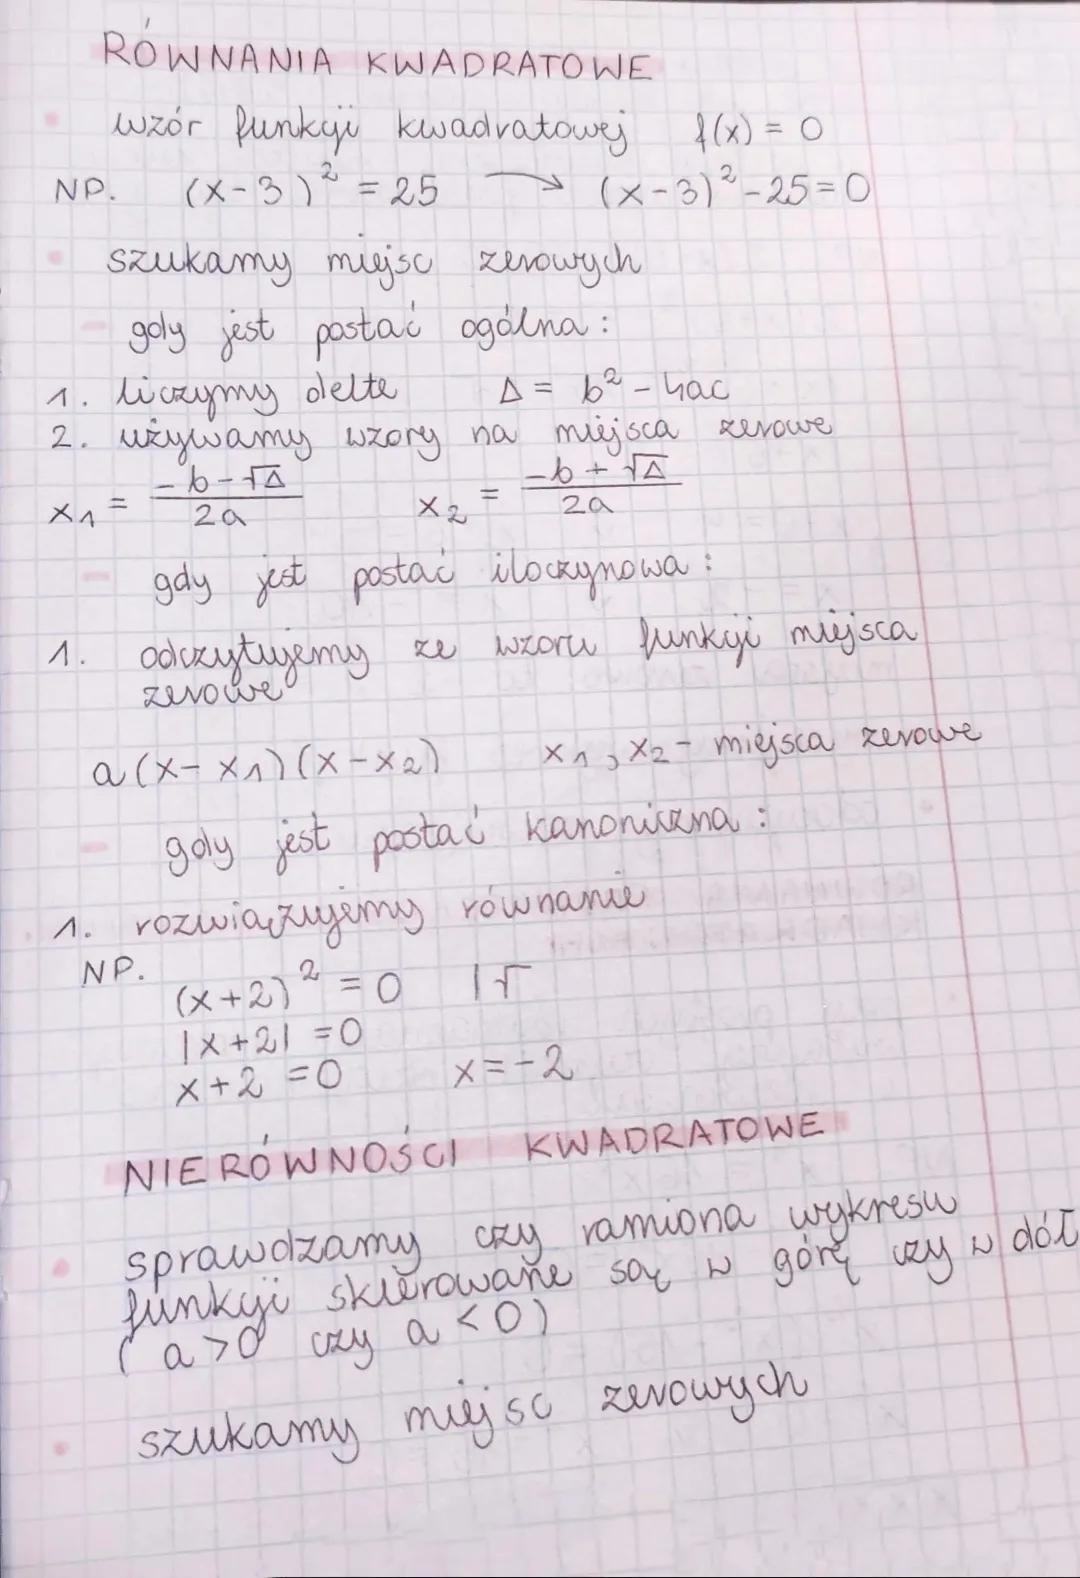 RÓWNANIA KWADRATOWE
wzór funkcji kwadratowej f(x) = 0
NP. (x-3)² = 25 → (x-3)² - 25 = 0
szukamy miejsc zerowych
- gdy jest postać ogólna:
1. liczymy delte Δ = b² - 4ac
2. używamy wzory na miejsca zerowe
x₁ = (-b-√Δ)/2a x₂ = (-b+√Δ)/2a
- gdy jest postać iloczynowa:
1. odczytujemy ze wzoru funkcji miejsca
zerowe
a(x-x₁)(x-x₂) x₁, x₂ - miejsca zerowe
- gdy jest postać kanoniczna:
1. rozwiązujemy równanie
NP.
(x+2)² = 0 |√
|x+2| = 0
x+2 = 0 x = -2
NIERÓWNOŚCI KWADRATOWE
sprawdzamy czy ramiona wykresu
funkcji skierowane są w górę czy w dół
(a>0 czy a<0)
szukamy miejsc zerowych